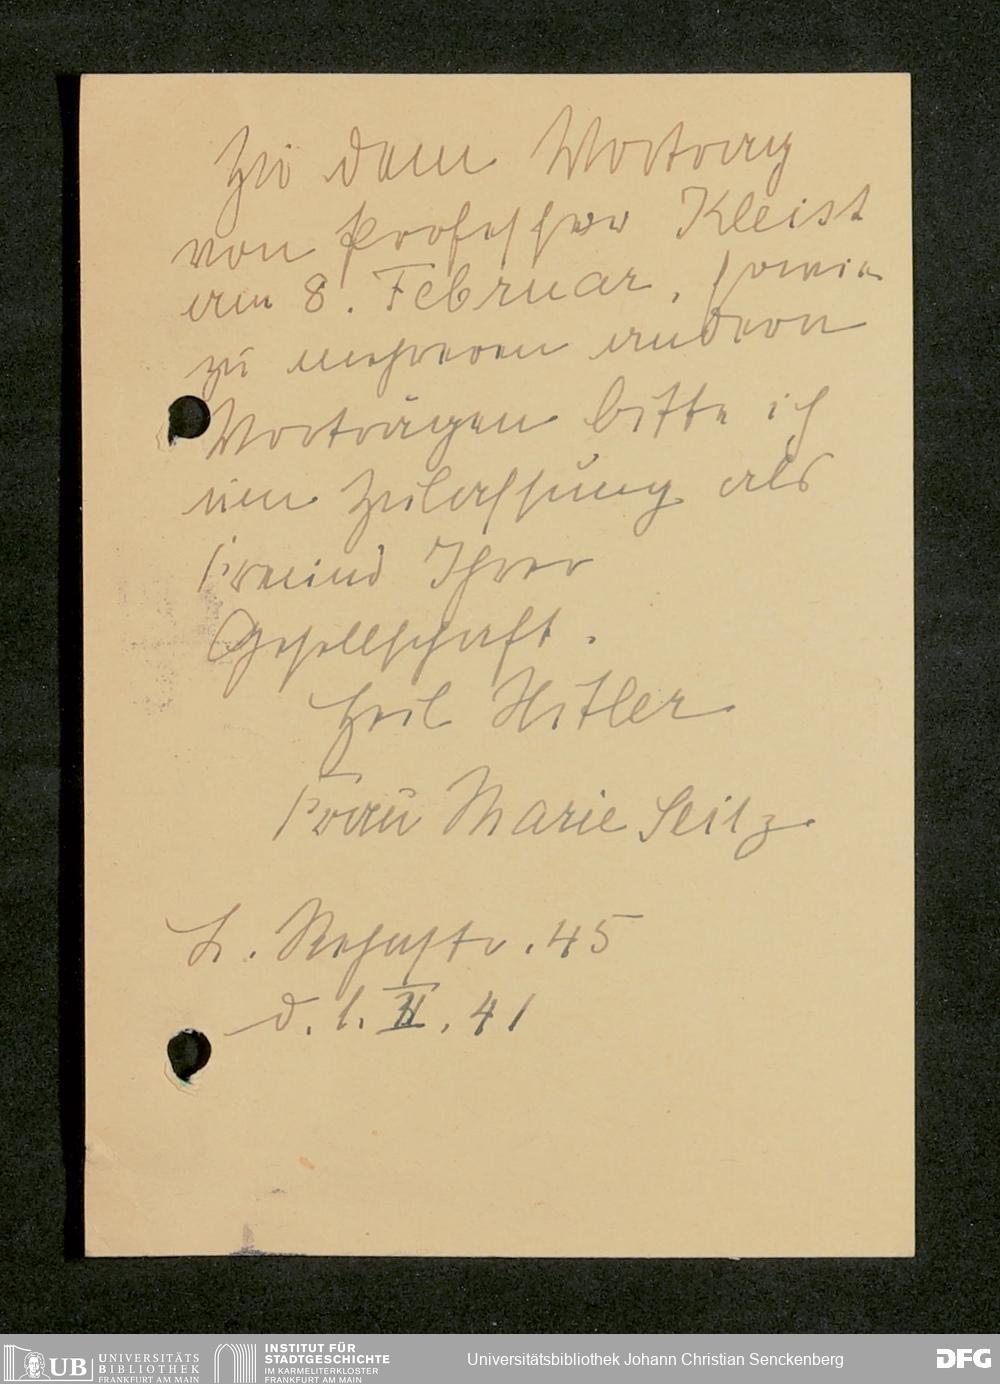 Zu dem Vortrag
von Professor Kleist
am 8. Februar, sowie
zu mehreren andern
Vorträgen bitte ich
um Zulassung als
Freund Ihrer
Gesellschaft.
Heil Hitler
Frau Marie Seitz.
L. Rehnstr. 45
d. 1. II. 41
UB UNIVERSITÄTS
BIBLIOTHEK
FRANKFURT AM MAIN
INSTITUT FÜR
STADTGESCHICHTE
IM KARMELITERKLOSTER
FRANKFURT AM MAIN
Universitätsbibliothek Johann Christian Senckenberg
DFG